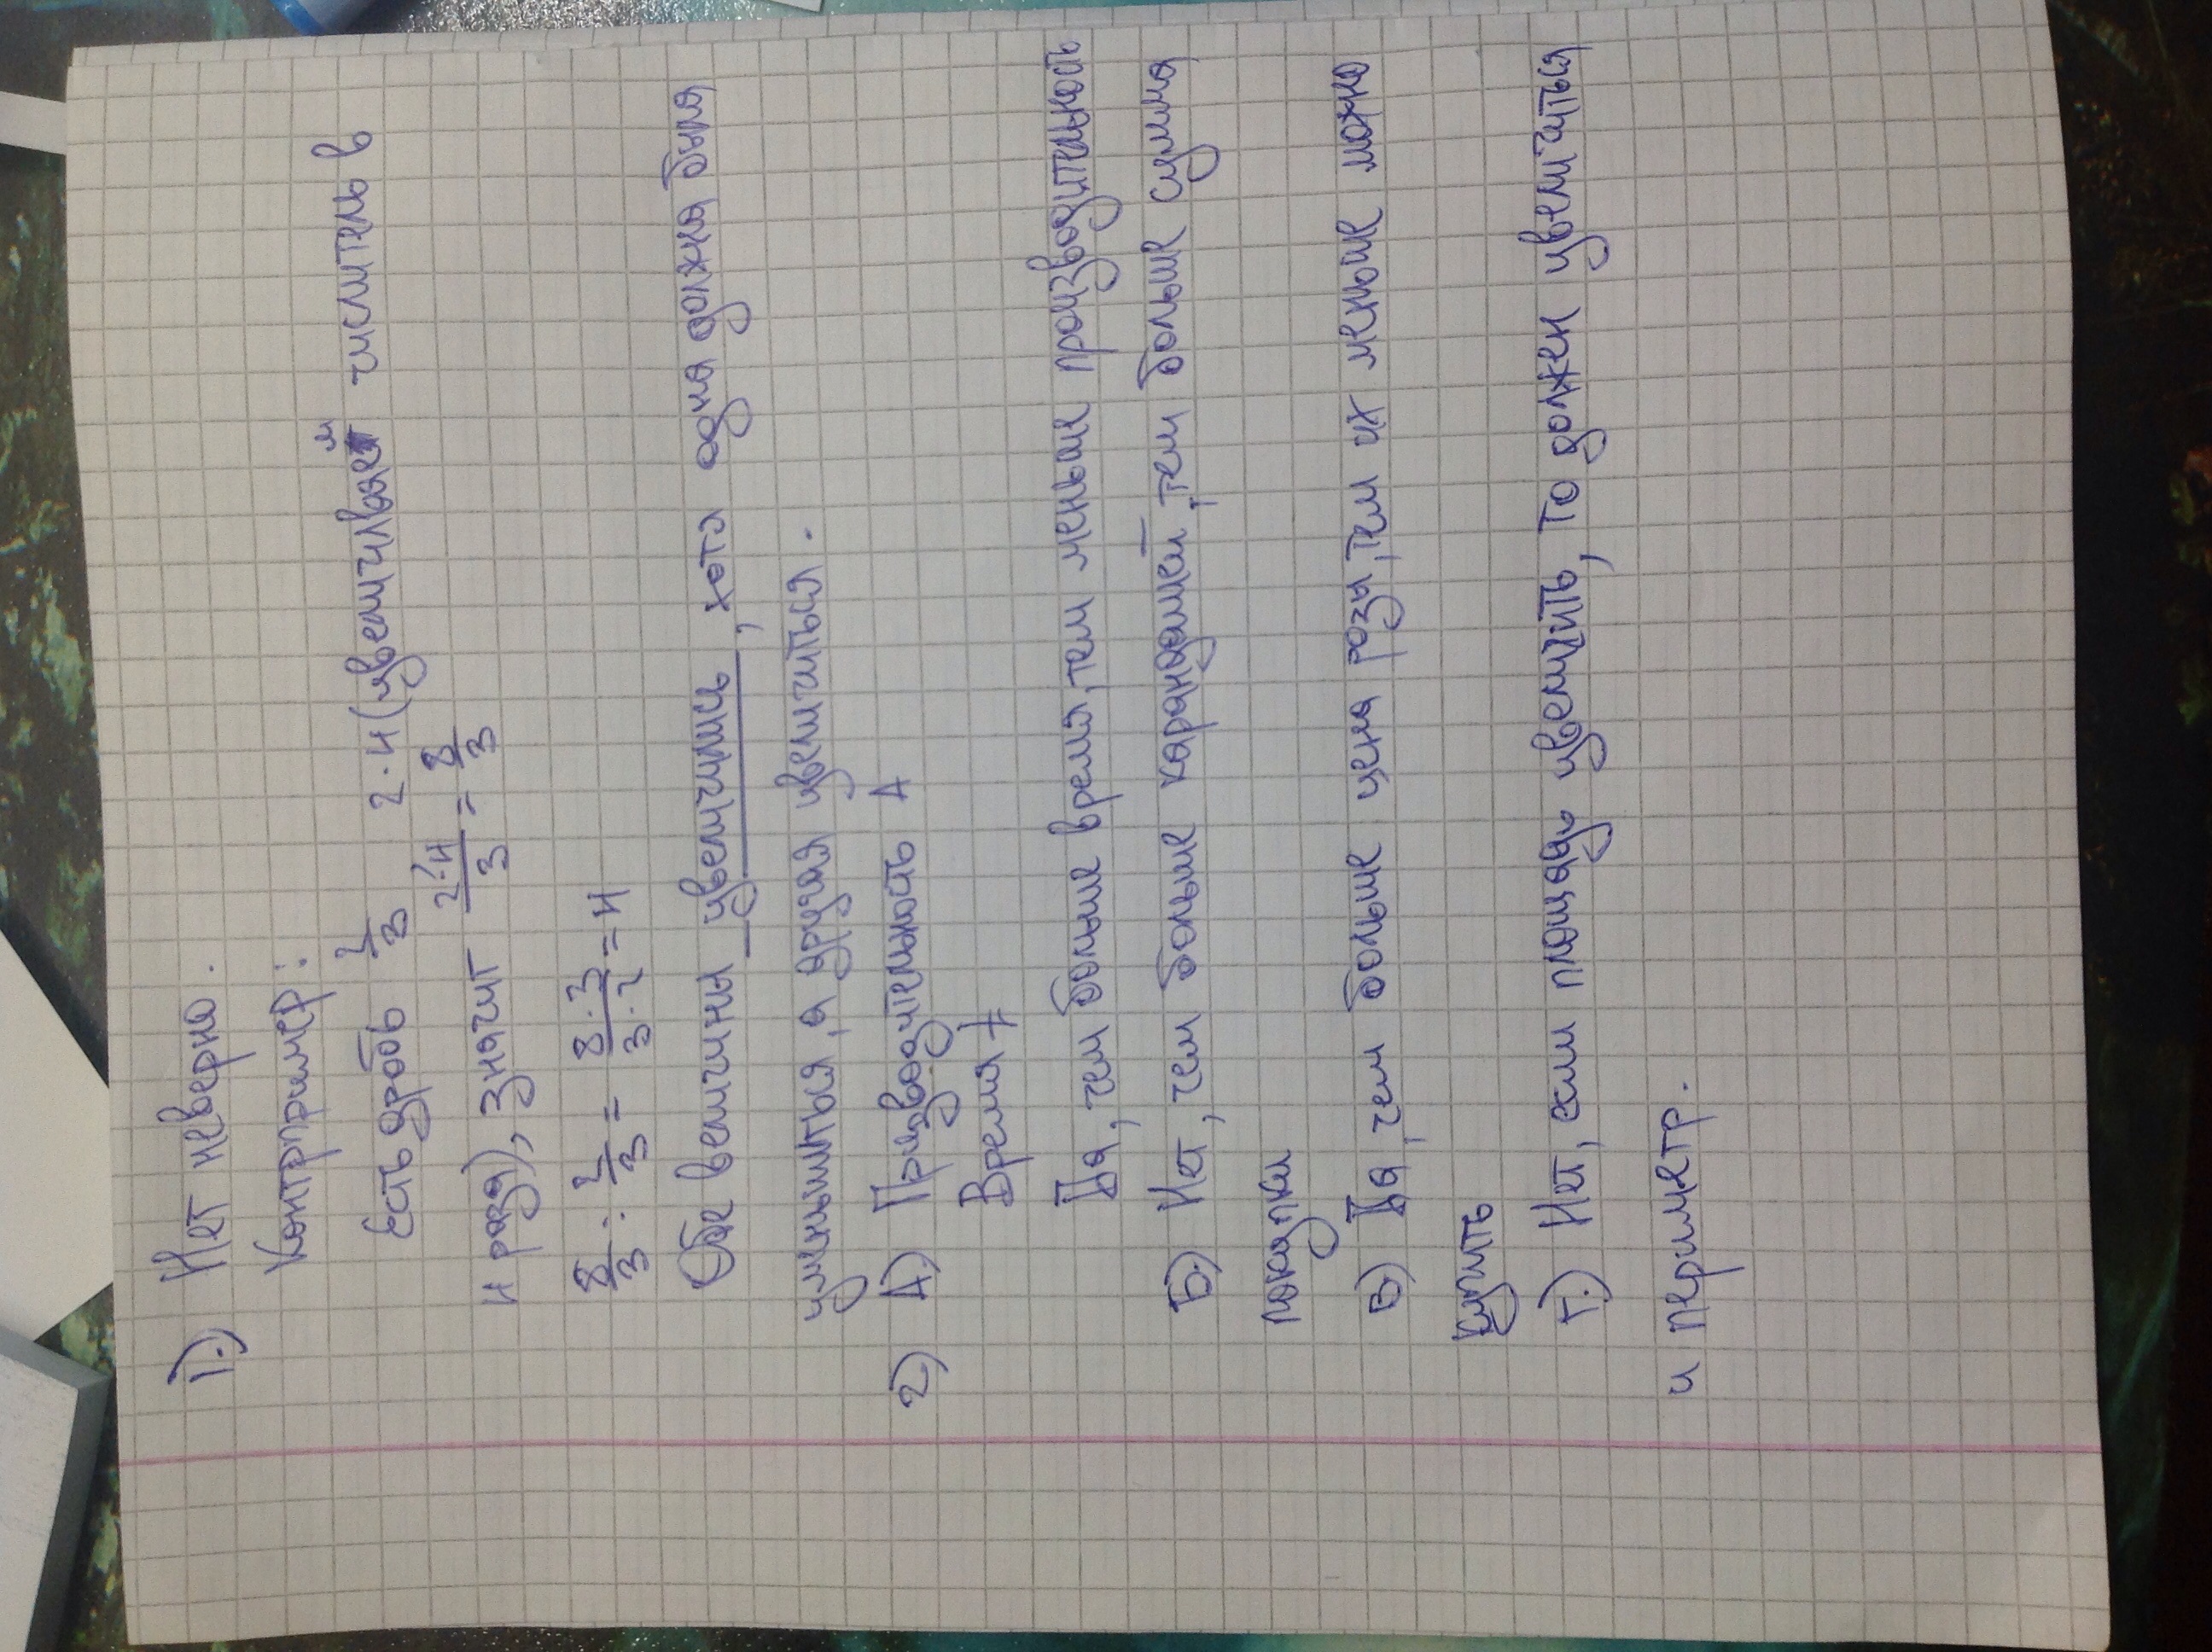 1.) Нет неверно.
Контрпример:
Есть дробь 2/3 2·4 (увеличиваем числитель в
4 раза), значит 2·4/3 = 8/3
8/3 : 2/3 = 8·3/3·2 = 4
Обе величины увеличились, хотя одна должна была
уменьшиться, а другая увеличиться.
2) А.) Призводительность А
Время t
Да, чем больше время, тем меньше произвводительность
Б.) Нет, чем больше карандашей, тем больше сумма
покупки
В) Да, чем больше цена розы, тем их меньше можно
купить
Г.) Нет, если площадь увеличить, то должен увеличиться
и периметр.